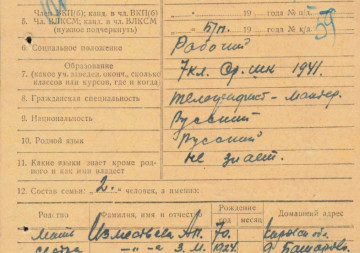 Член ВКП(б), канд. в ВКП(б)
5. Член ВЛКСМ, канд. в ВЛКСМ
(нужное подчеркнуть)
с 19 года № п/б.
Б/п. с 19 года № к/д.
59
6. Социальное положение Рабочий
7. Образование
(какое уч. заведен. оконч., сколько
классов или курсов, где и когда)
7 кл. Ср. шк 1941.
8. Гражданская специальность
9. Национальность Русский
10. Родной язык Русский
11. Какие языки знает кроме род-
ного и как ими владеет
не знает.
12. Состав семьи: „2" человек, а именно:
Родство Фамилия, имя и отчество Рождение год месяц Домашний адрес
Мать А.П. 70.
сестра —"— З.М. 1924.